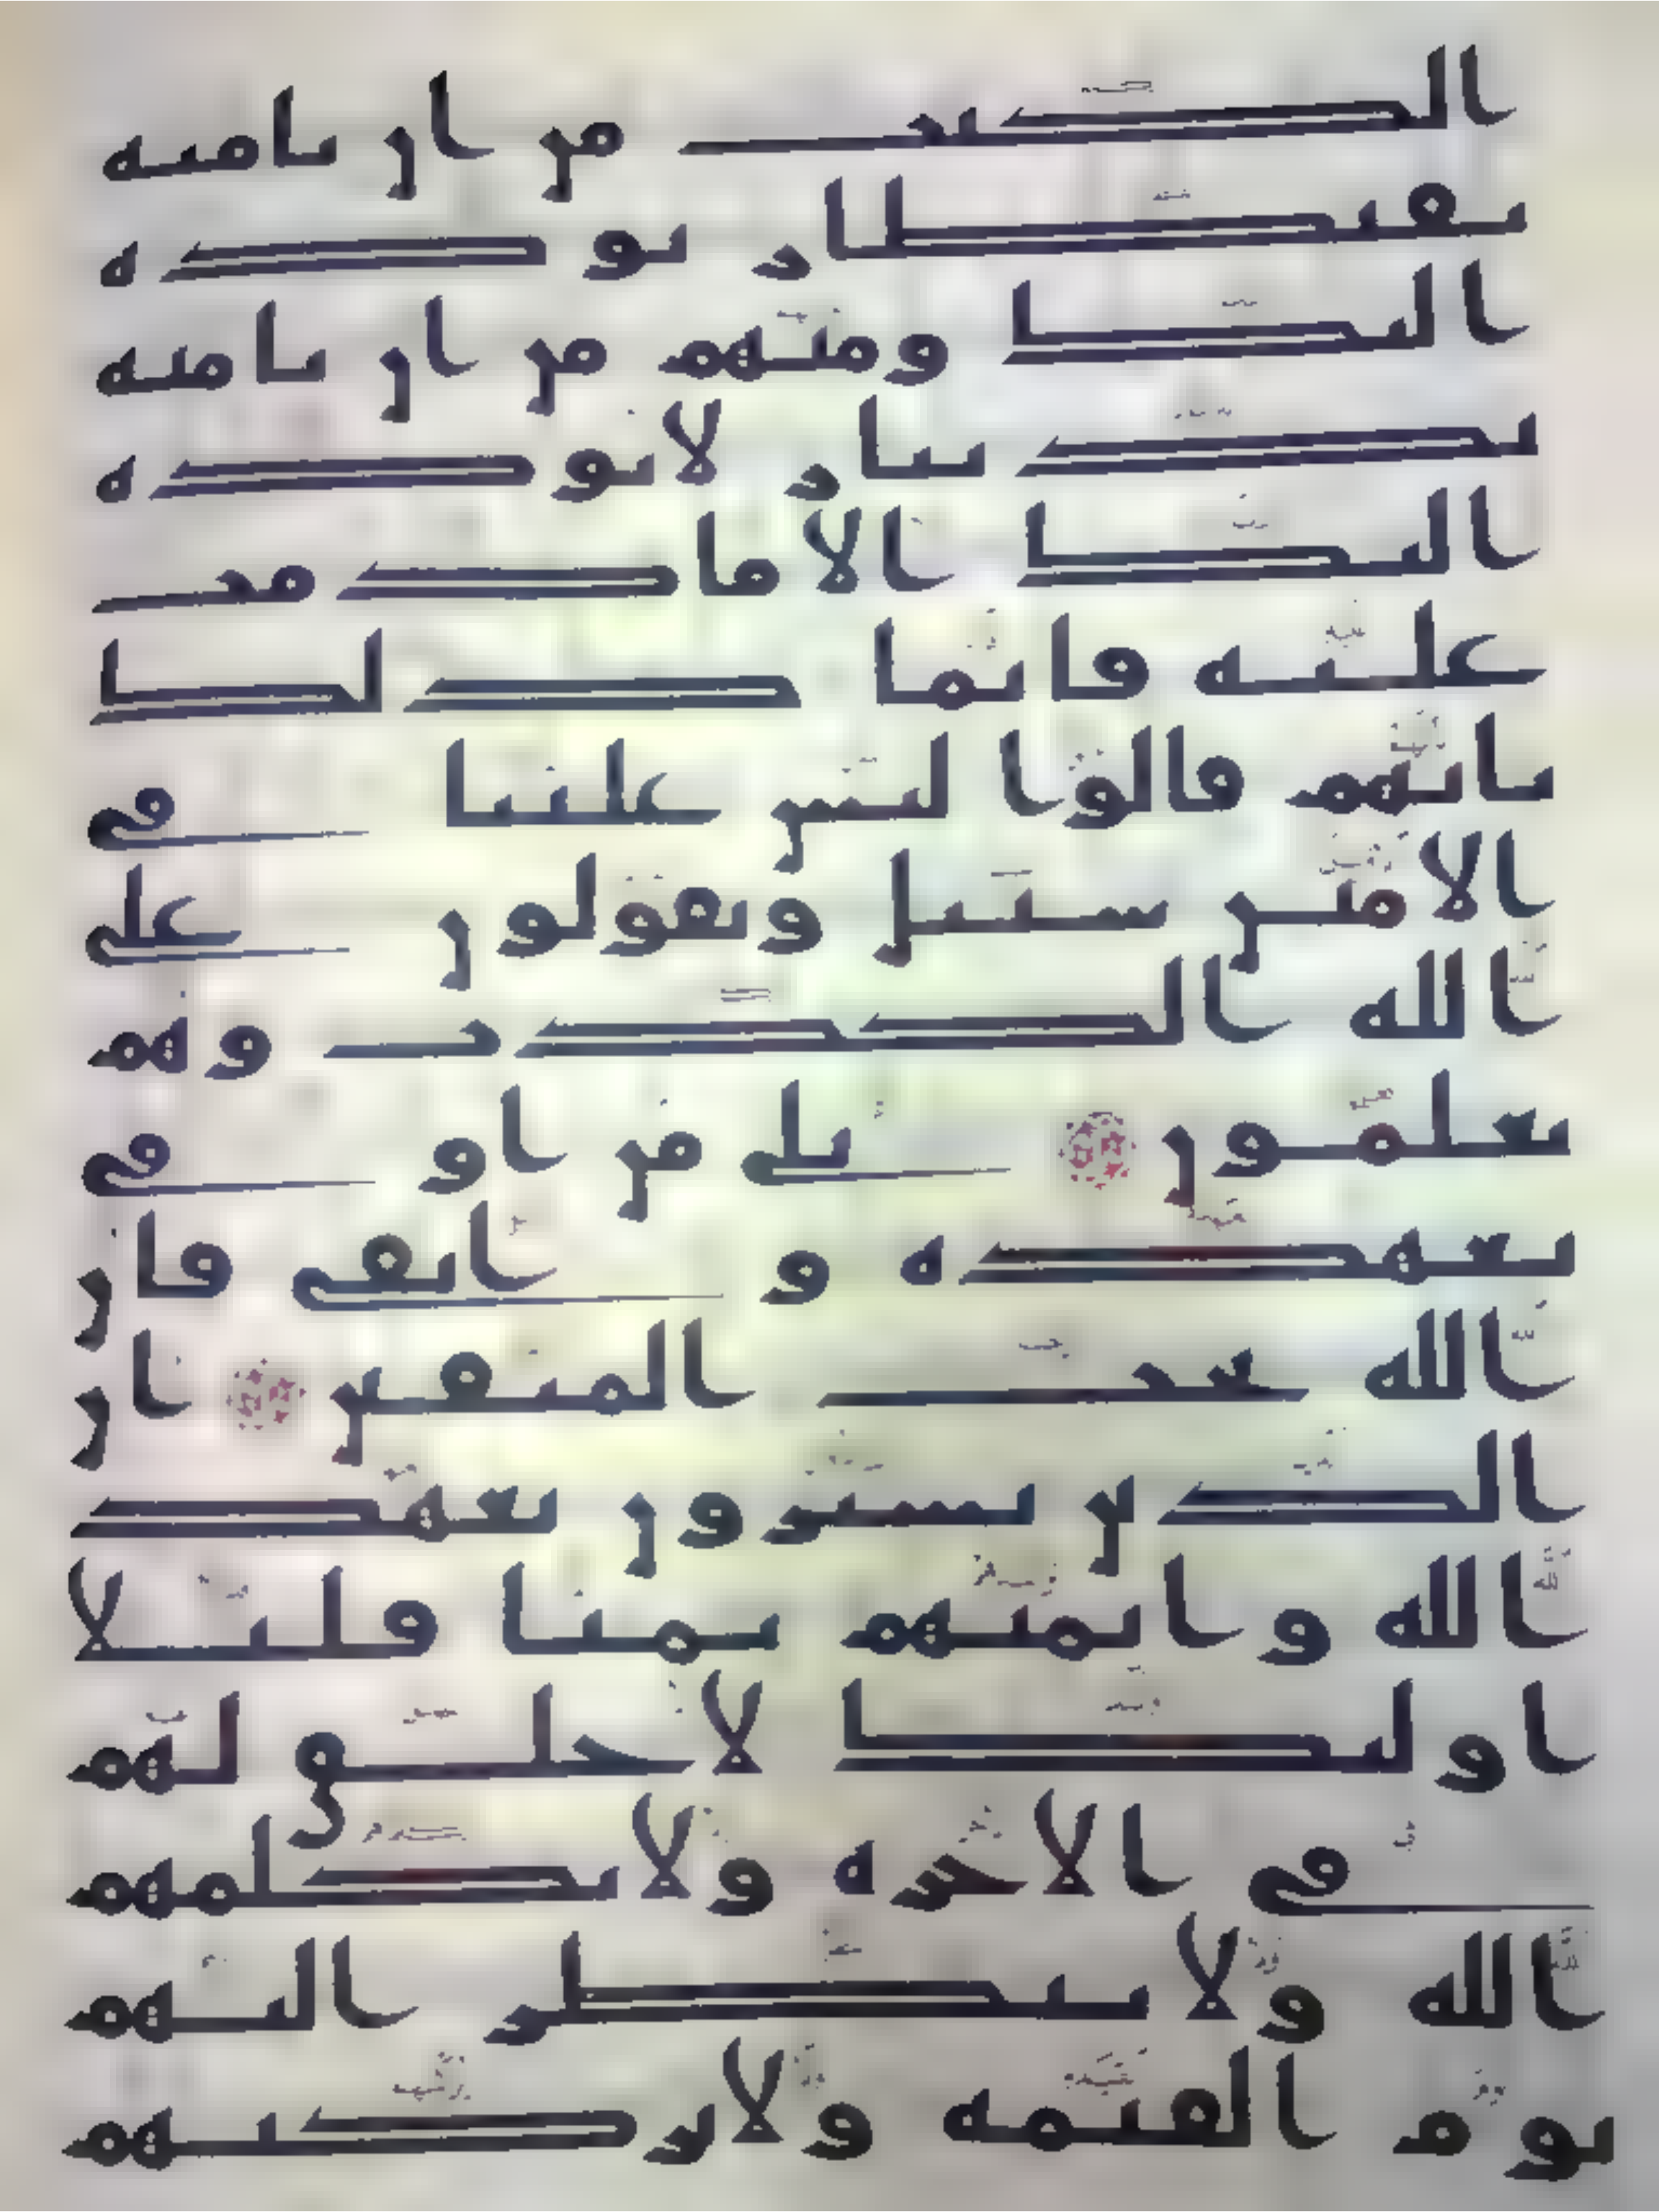 الكتب من ان تامنه
بقنطار يوده
اليك ومنهم من ان تامنه
بدينار لا يوده
اليك الا ما دمت
عليه قائما ذلك
بانهم قالوا ليس علينا في
الامين سبيل ويقولون على
الله الكذب وهم
يعلمون بلى من او في
بعهده و اتقى فان
الله يحب المتقين ان
الذين يشترون بعهد
الله وايمنهم ثمنا قليلا
اوليك لا خلق لهم
في الاخره ولا يكلمهم
الله ولا ينظر اليهم
يوم القيمه ولا يزكيهم